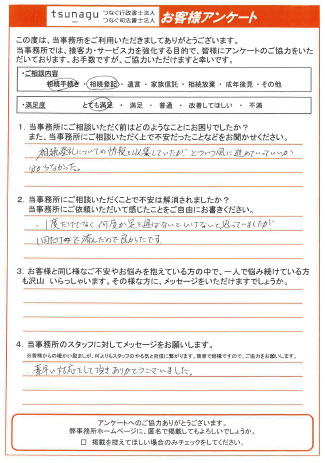 tsunagu つなぐ行政書士法人
つなぐ司法書士法人
お客様アンケート
この度は、当事務所をご利用いただきましてありがとうございます。
当事務所では、接客力・サービス力を強化する目的で、皆様にアンケートのご協力をいた
だいております。お手数ですが、ご協力いただけますと幸いです。
・ご相談内容
相続手続き・相続登記・遺言・家族信託・相続放棄・成年後見・その他
・満足度
とても満足・満足・普通・改善してほしい・不満
1.当事務所にご相談いただく前はどのようなことにお困りでしたか?
また、当事務所にご相談いただく上で不安だったことなどをお聞かせください。
相続登記についての情報を収集していたが どういう風に進めていっていいか
分からなかった。
2.当事務所にご相談いただくことで不安は解消されましたか?
当事務所にご依頼いただいて感じたことをご自由にお書きください。
1度だけでなく、何度か足を運ばないといけないと思っていましたが
1回だけで済んだので良かったです
3.お客様と同じ様なご不安やお悩みを抱えている方の中で、一人で悩み続けている方
も沢山いらっしゃいます。その様な方に、メッセージをいただけますでしょうか。
4.当事務所のスタッフに対してメッセージをお願いします。
※お客様からの暖かい励ましが、何よりもスタッフのやる気と自信に繋がります。簡単で結構ですので、ご協力をお願いします。
素早い対応をして頂きありがとうございました。
アンケートへのご協力ありがとうございます。
弊事務所ホームページに、匿名で掲載してもよろしいでしょうか。
□ 掲載を控えてほしい場合のみチェックをしてください。